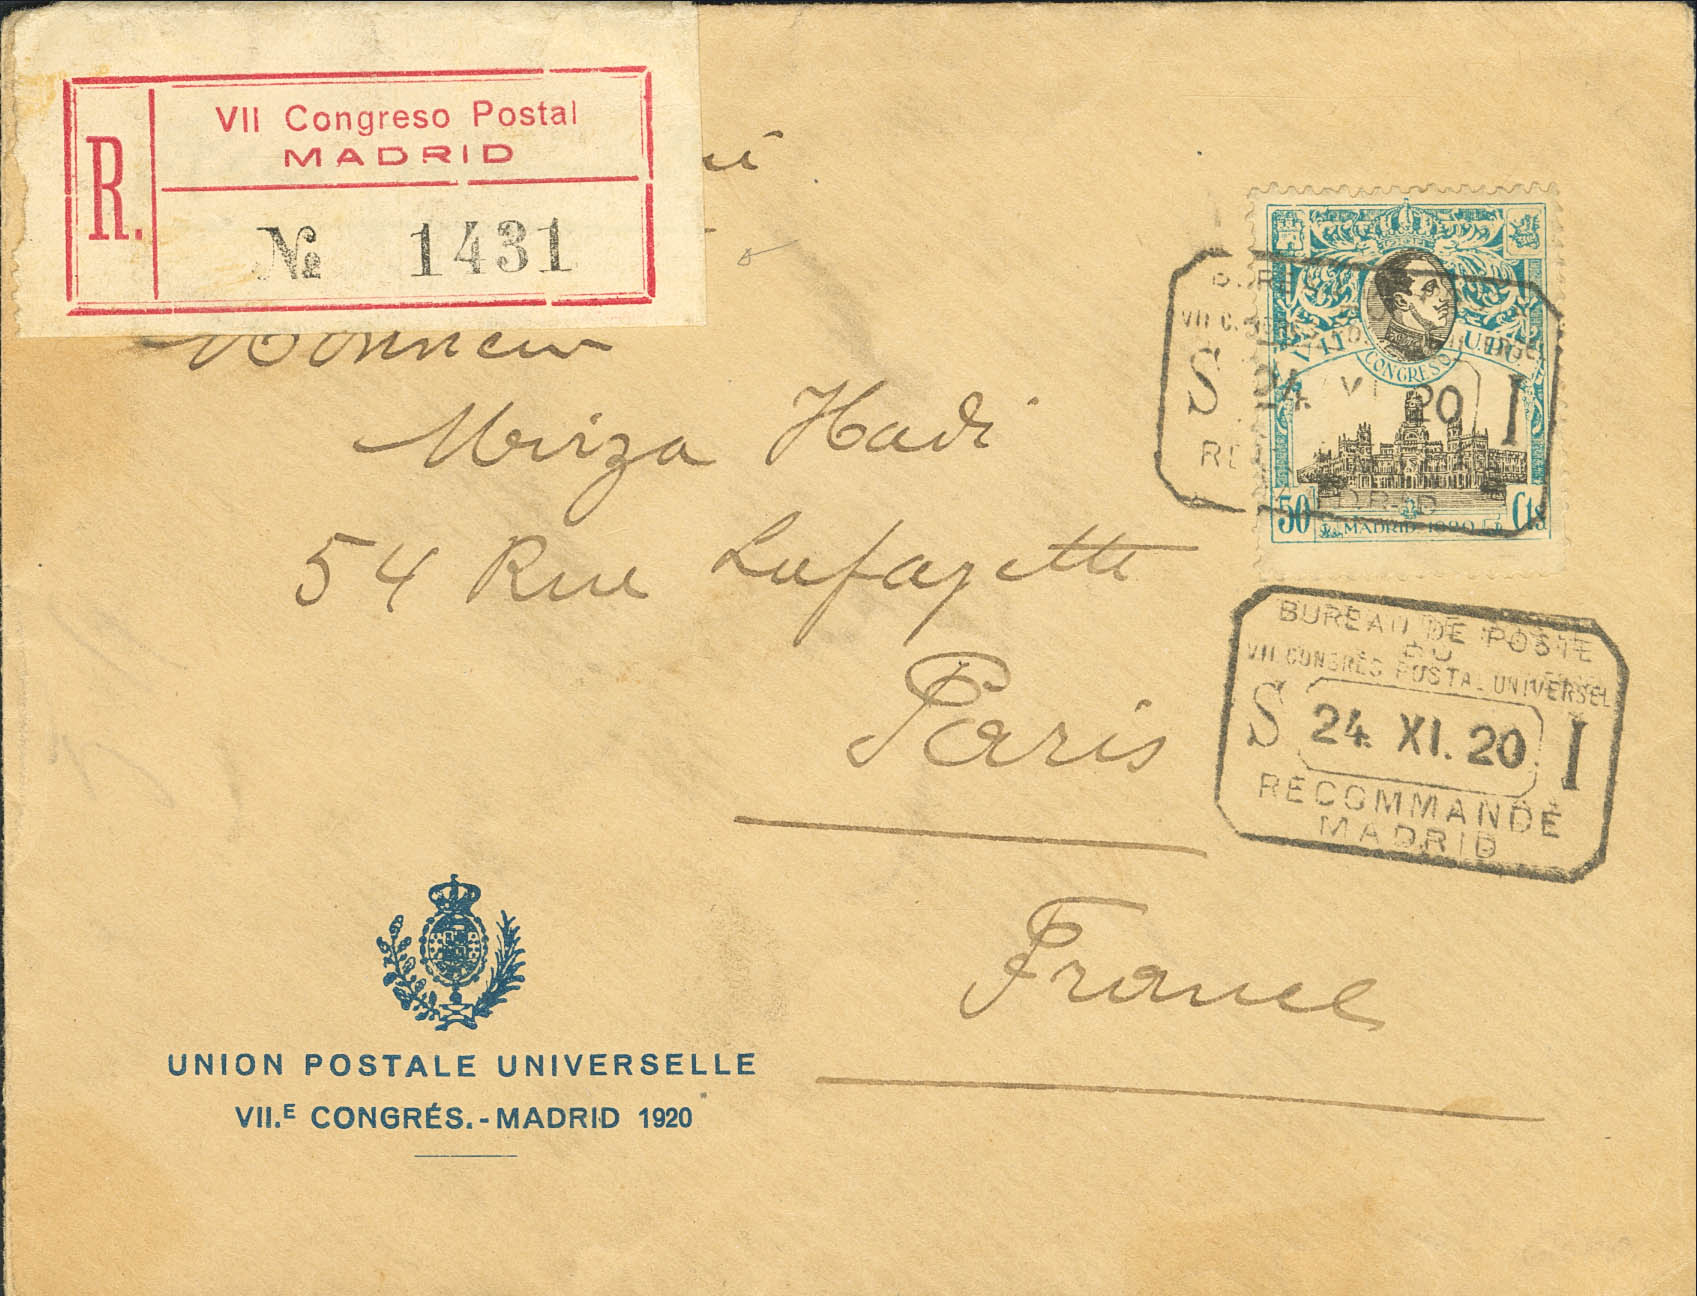 VII Congreso Postal
MADRID
R.
№ 1431
Monsieur
Mirza Hadi
54 Rue Lafayette
Paris
France
VII CONGRESO U.P.U.
50 MADRID 1920 Cts
S 24 XI 20 I
BUREAU DE POSTE
DU
VII CONGRÈS POSTAL UNIVERSEL
S 24. XI. 20 I
RECOMMANDÉ
MADRID
UNION POSTALE UNIVERSELLE
VII.E CONGRÉS.-MADRID 1920